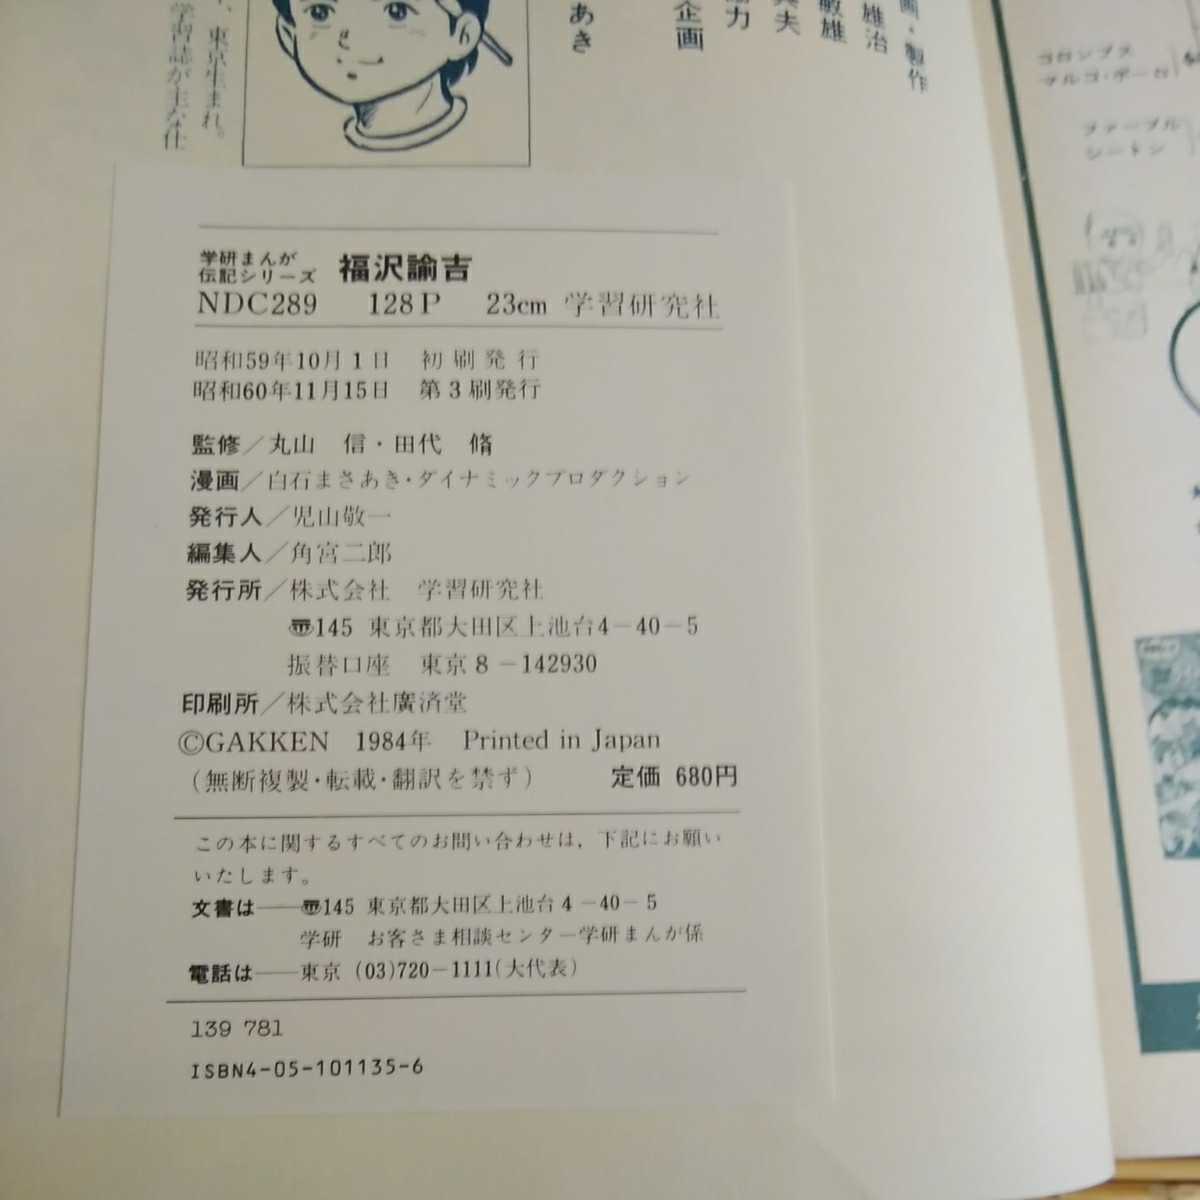 画・製作
雄治
敏雄
夫
力
企画
あき
、東京生まれ。
学習誌が主な仕
コロンブス
マルコ・ポーロ
ファーブル
シートン
学研まんが
伝記シリーズ 福沢諭吉
NDC289 128P 23cm 学習研究社
昭和59年10月1日 初刷発行
昭和60年11月15日 第3刷発行
監修/丸山 信・田代 脩
漫画/白石まさあき・ダイナミックプロダクション
発行人/児山敬一
編集人/角宮二郎
発行所/株式会社 学習研究社
〠145 東京都大田区上池台4-40-5
振替口座 東京8-142930
印刷所/株式会社廣済堂
©GAKKEN 1984年 Printed in Japan
(無断複製・転載・翻訳を禁ず) 定価 680円
この本に関するすべてのお問い合わせは, 下記にお願い
いたします。
文書は――〠145 東京都大田区上池台4-40-5
学研 お客さま相談センター学研まんが係
電話は――東京 (03)720-1111(大代表)
139 781
ISBN4-05-101135-6